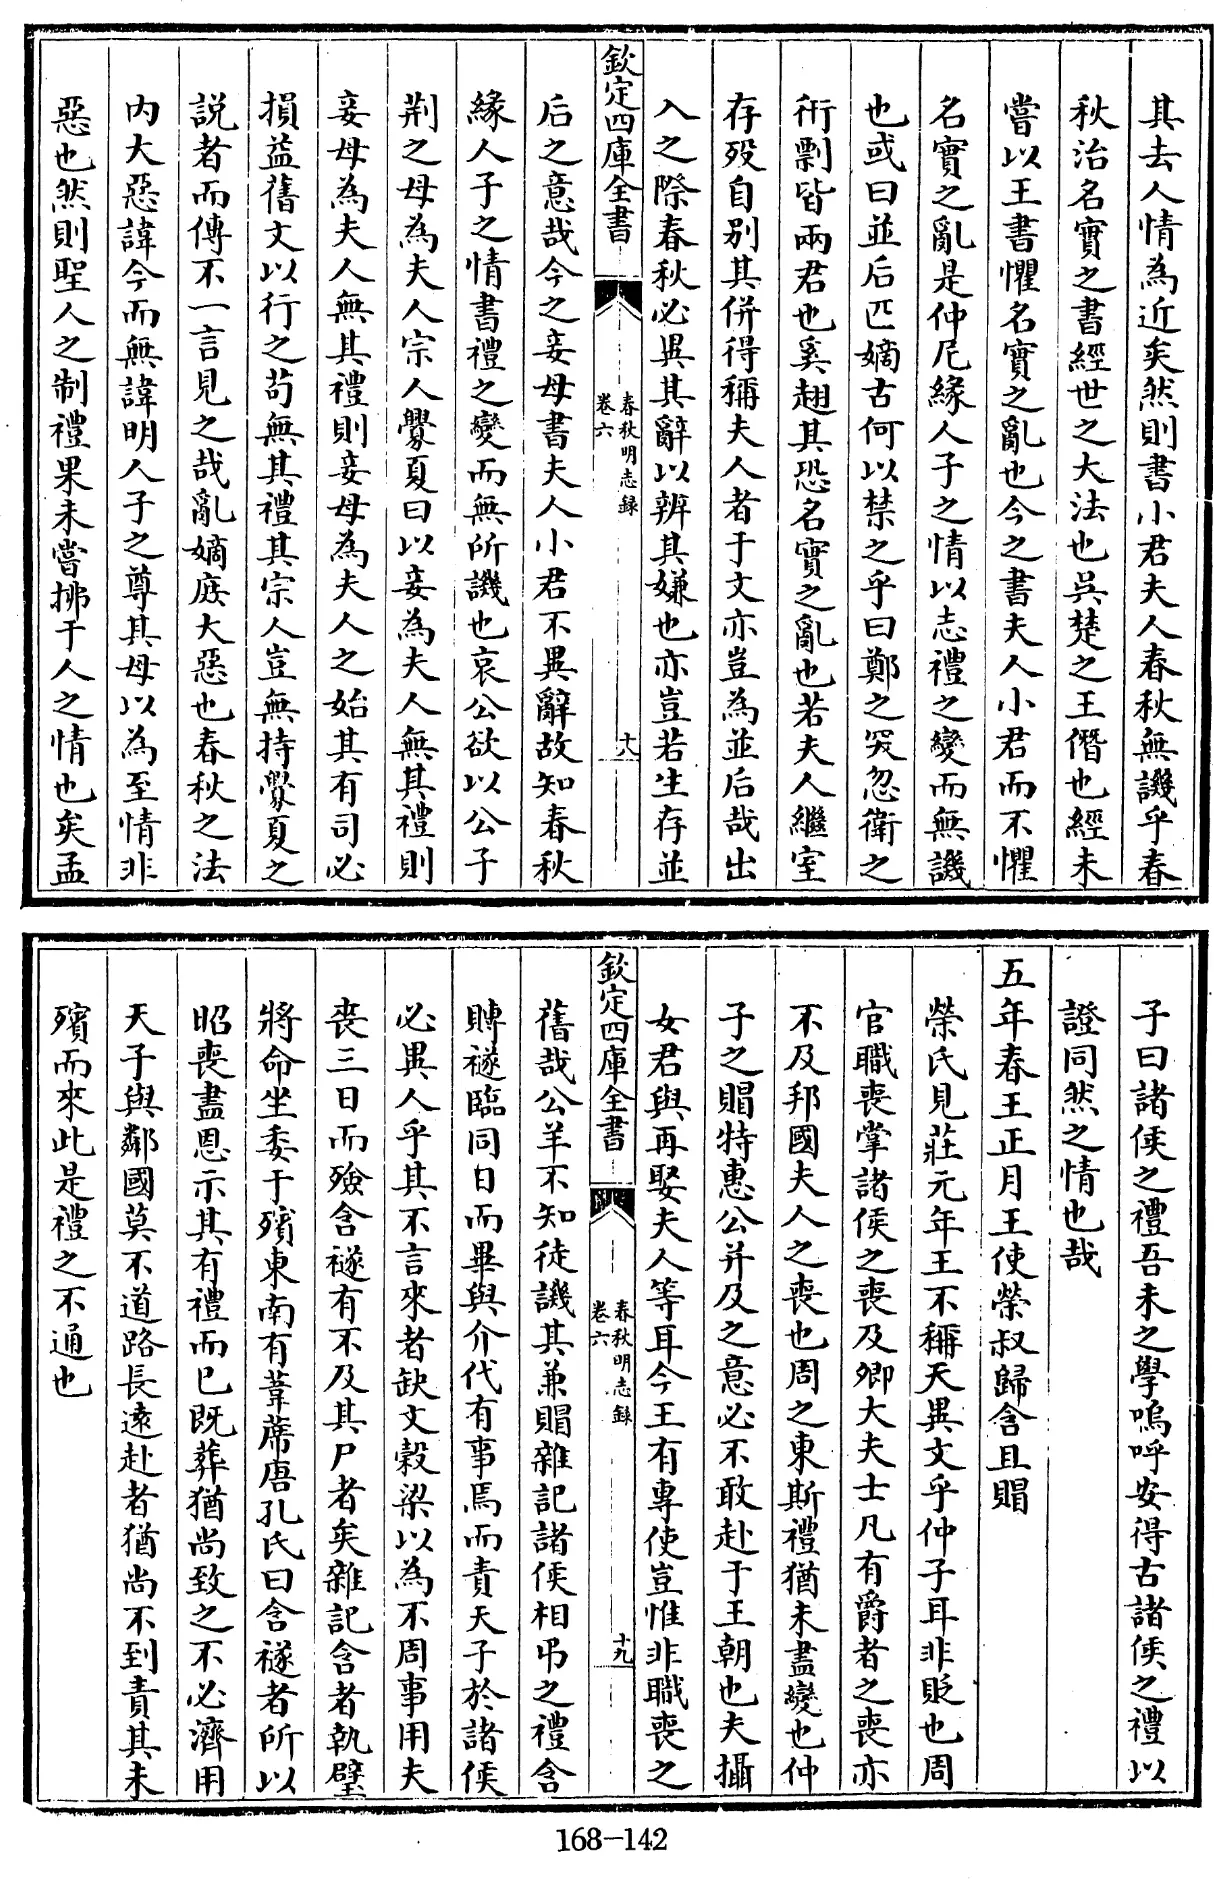 其去人情為近矣然則書小君夫人春秋無譏乎春
秋治名實之書經世之大法也吳楚之王僭也經未
嘗以王書懼名實之亂也今之書夫人小君而不懼
名實之亂是仲尼緣人子之情以志禮之變而無譏
也或曰並后匹嫡古何以禁之乎曰鄭之突忽衛之
衎剽皆兩君也奚趐其恐名實之亂也若夫人繼室
存歿自別其併得稱夫人者于文亦豈為並后哉出
入之際春秋必異其辭以辨其嫌也亦豈若生存並
欽定四庫全書
春秋明志錄
卷六
十八
后之意哉今之妾母書夫人小君不異辭故知春秋
緣人子之情書禮之變而無所譏也哀公欲以公子
荆之母為夫人宗人釁夏曰以妾為夫人無其禮則
妾母為夫人無其禮則妾母為夫人之始其有司必
損益舊文以行之苟無其禮其宗人豈無持釁夏之
説者而傳不一言見之哉亂嫡庶大惡也春秋之法
内大惡諱今而無諱明人子之尊其母以為至情非
惡也然則聖人之制禮果未嘗拂于人之情也矣孟
子曰諸侯之禮吾未之學嗚呼安得古諸侯之禮以
證同然之情也哉
五年春王正月王使榮叔歸含且賵
榮氏見莊元年王不稱天異文乎仲子耳非貶也周
官職喪掌諸侯之喪及卿大夫士凡有爵者之喪亦
不及邦國夫人之喪也周之東斯禮猶未盡變也仲
子之賵特惠公并及之意必不敢赴于王朝也夫攝
女君與再娶夫人等耳今王有專使豈惟非職喪之
欽定四庫全書
春秋明志錄
卷六
十九
舊哉公羊不知徒譏其兼賵雜記諸侯相弔之禮含
賵襚臨同日而畢與介代有事焉而責天子於諸侯
必異人乎其不言來者缺文穀梁以為不周事用夫
喪三日而殮含襚有不及其尸者矣雜記含者執璧
將命坐委于殯東南有葦席唐孔氏曰含襚者所以
昭喪盡恩示其有禮而已既葬猶尚致之不必濟用
天子與鄰國莫不道路長遠赴者猶尚不到責其未
殯而來此是禮之不通也
168-142